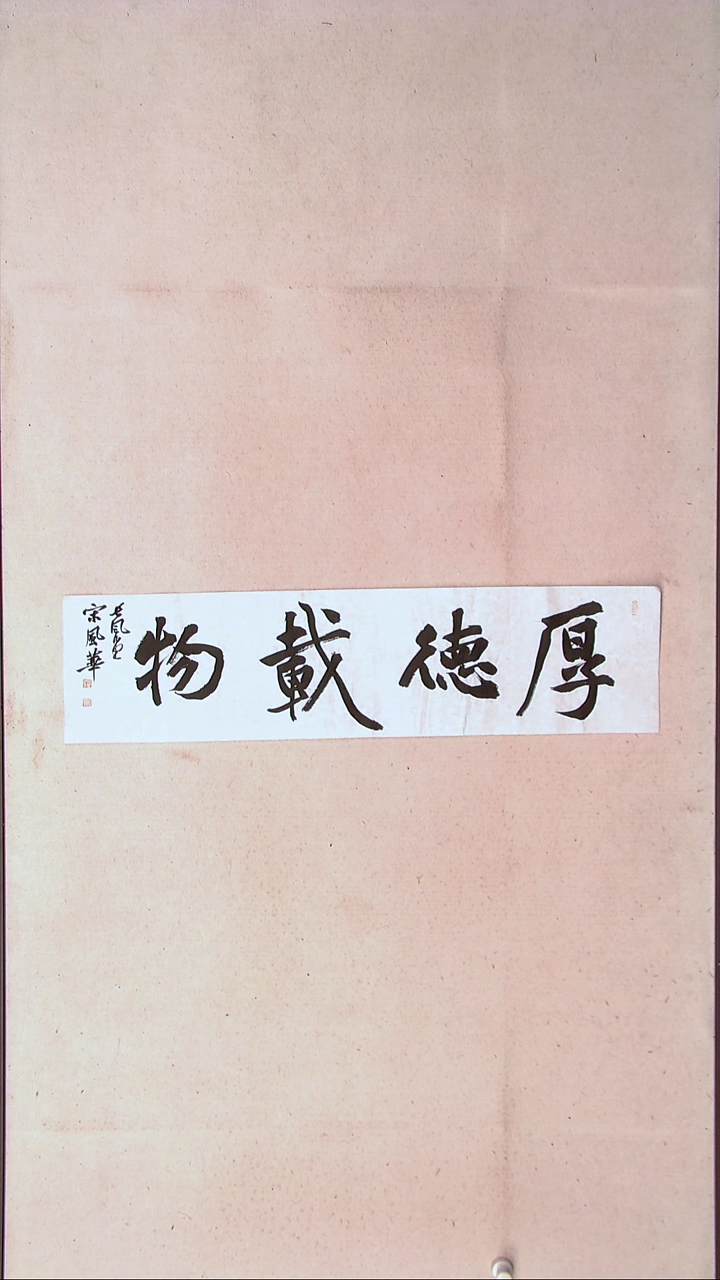 厚德載物
宋風華